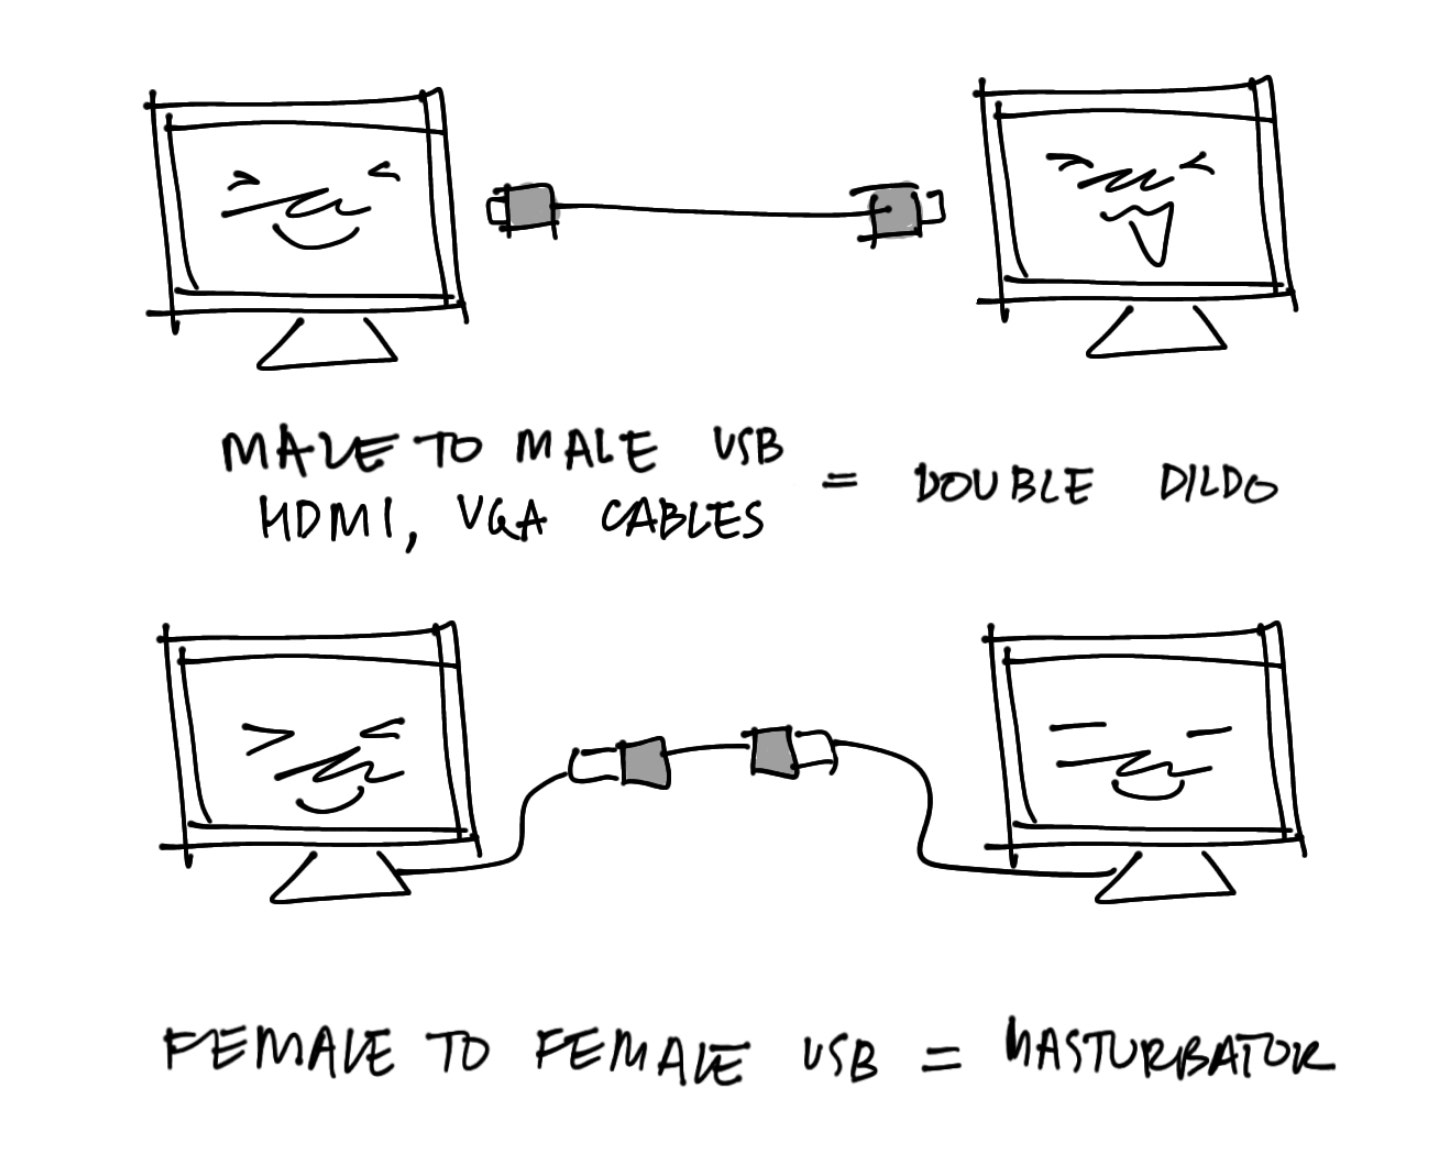 MALE TO MALE USB
HDMI, VGA CABLES
= DOUBLE DILDO
FEMALE TO FEMALE USB = MASTURBATOR